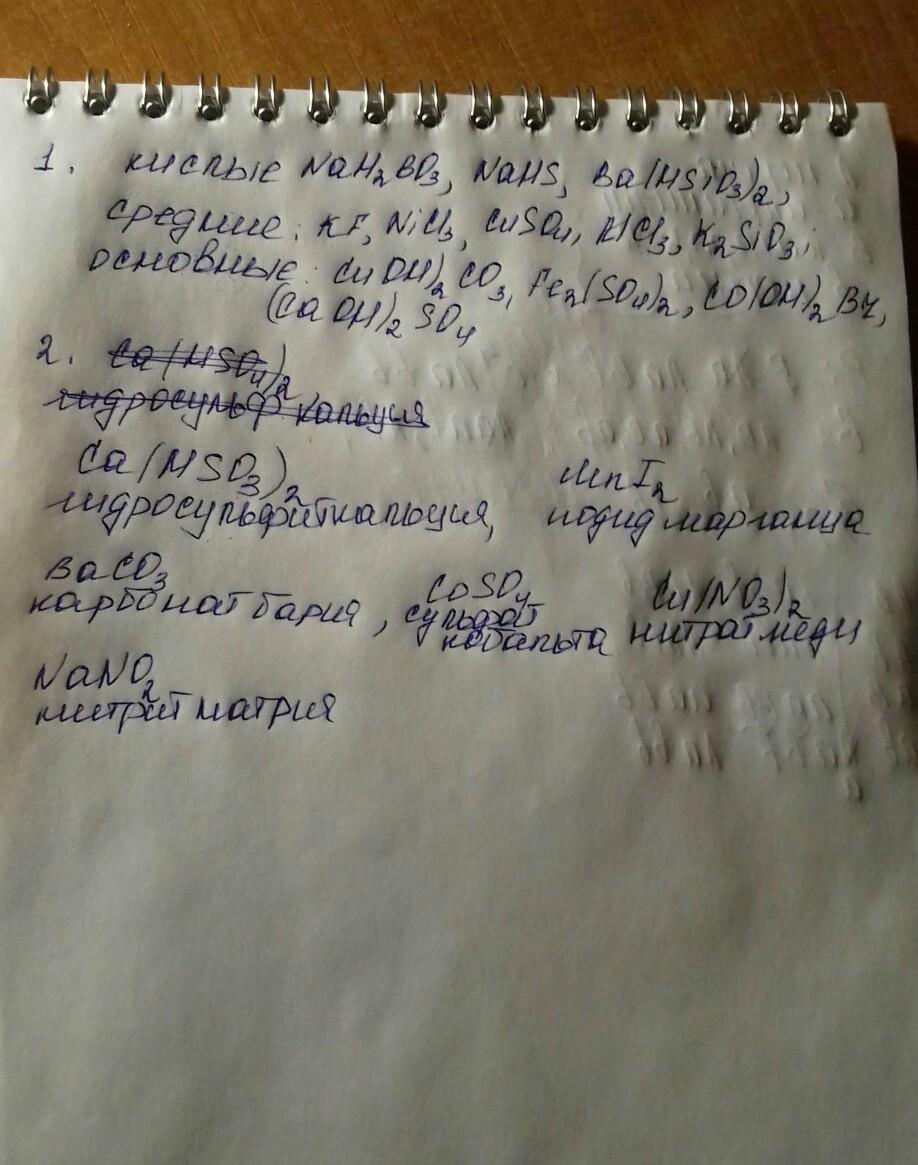 1. кислые NaH₂BO₃, NaHS, Ba(HSiO₃)₂,
средние: KF, NiCl₃, CuSO₄, AlCl₃, K₂SiO₃;
основные: CuOH)₂CO₃, Fe₂(SO₄)₂, CO(OH)₂Br,
(CaOH)₂SO₄
2. Ca(HSO₄)₂
гидросульф кальция
Ca(HSO₃)₂ MnI₂
гидросульфит кальция, иодид марганца
BaCO₃ CoSO₄ Cu(NO₃)₂
карбонат бария, сульфат кобальта нитрат меди
NaNO₂
нитрит натрия